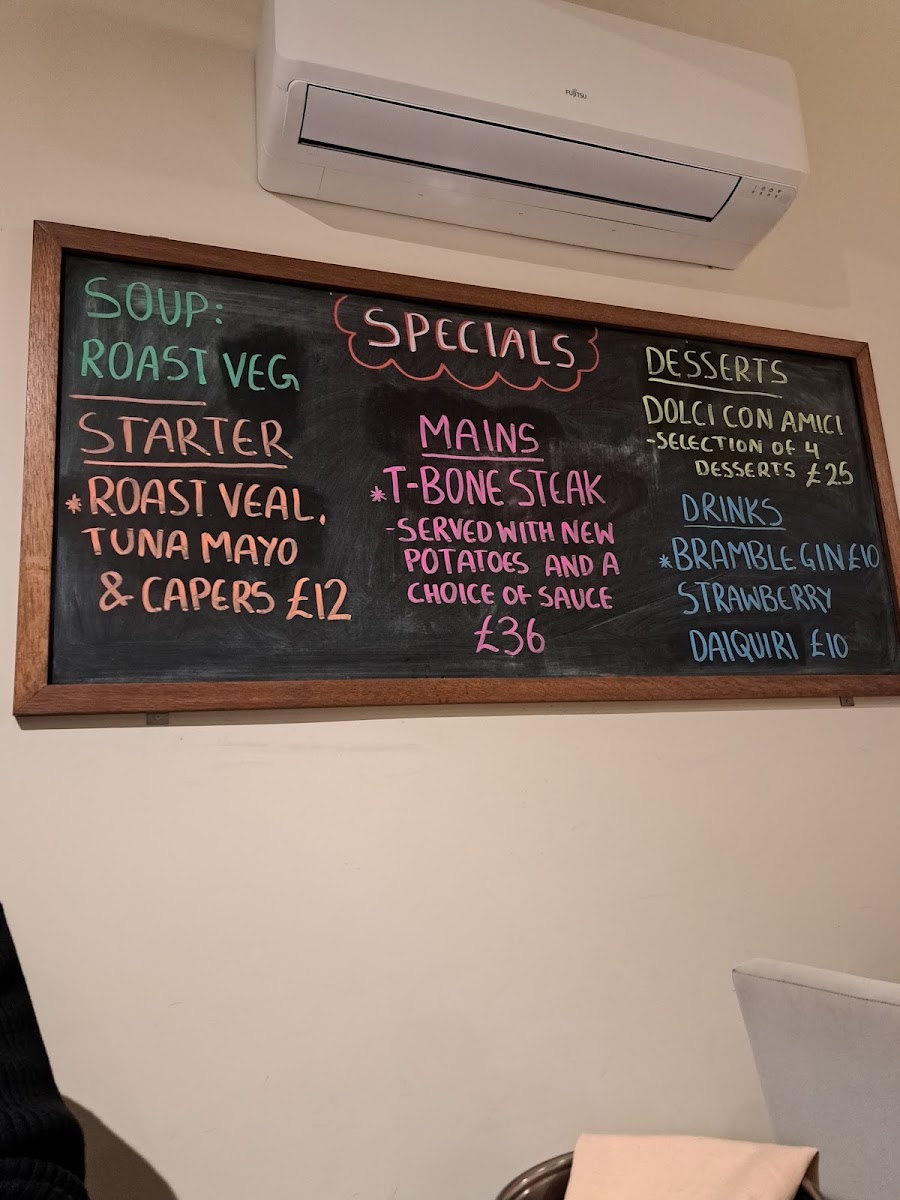 FUJITSU
SPECIALS
SOUP:
ROAST VEG
STARTER
*ROAST VEAL,
TUNA MAYO
& CAPERS £12
MAINS
*T-BONE STEAK
-SERVED WITH NEW
POTATOES AND A
CHOICE OF SAUCE
£36
DESSERTS
DOLCI CON AMICI
-SELECTION OF 4
DESSERTS £25
DRINKS
*BRAMBLE GIN £10
STRAWBERRY
DAIQUIRI £10